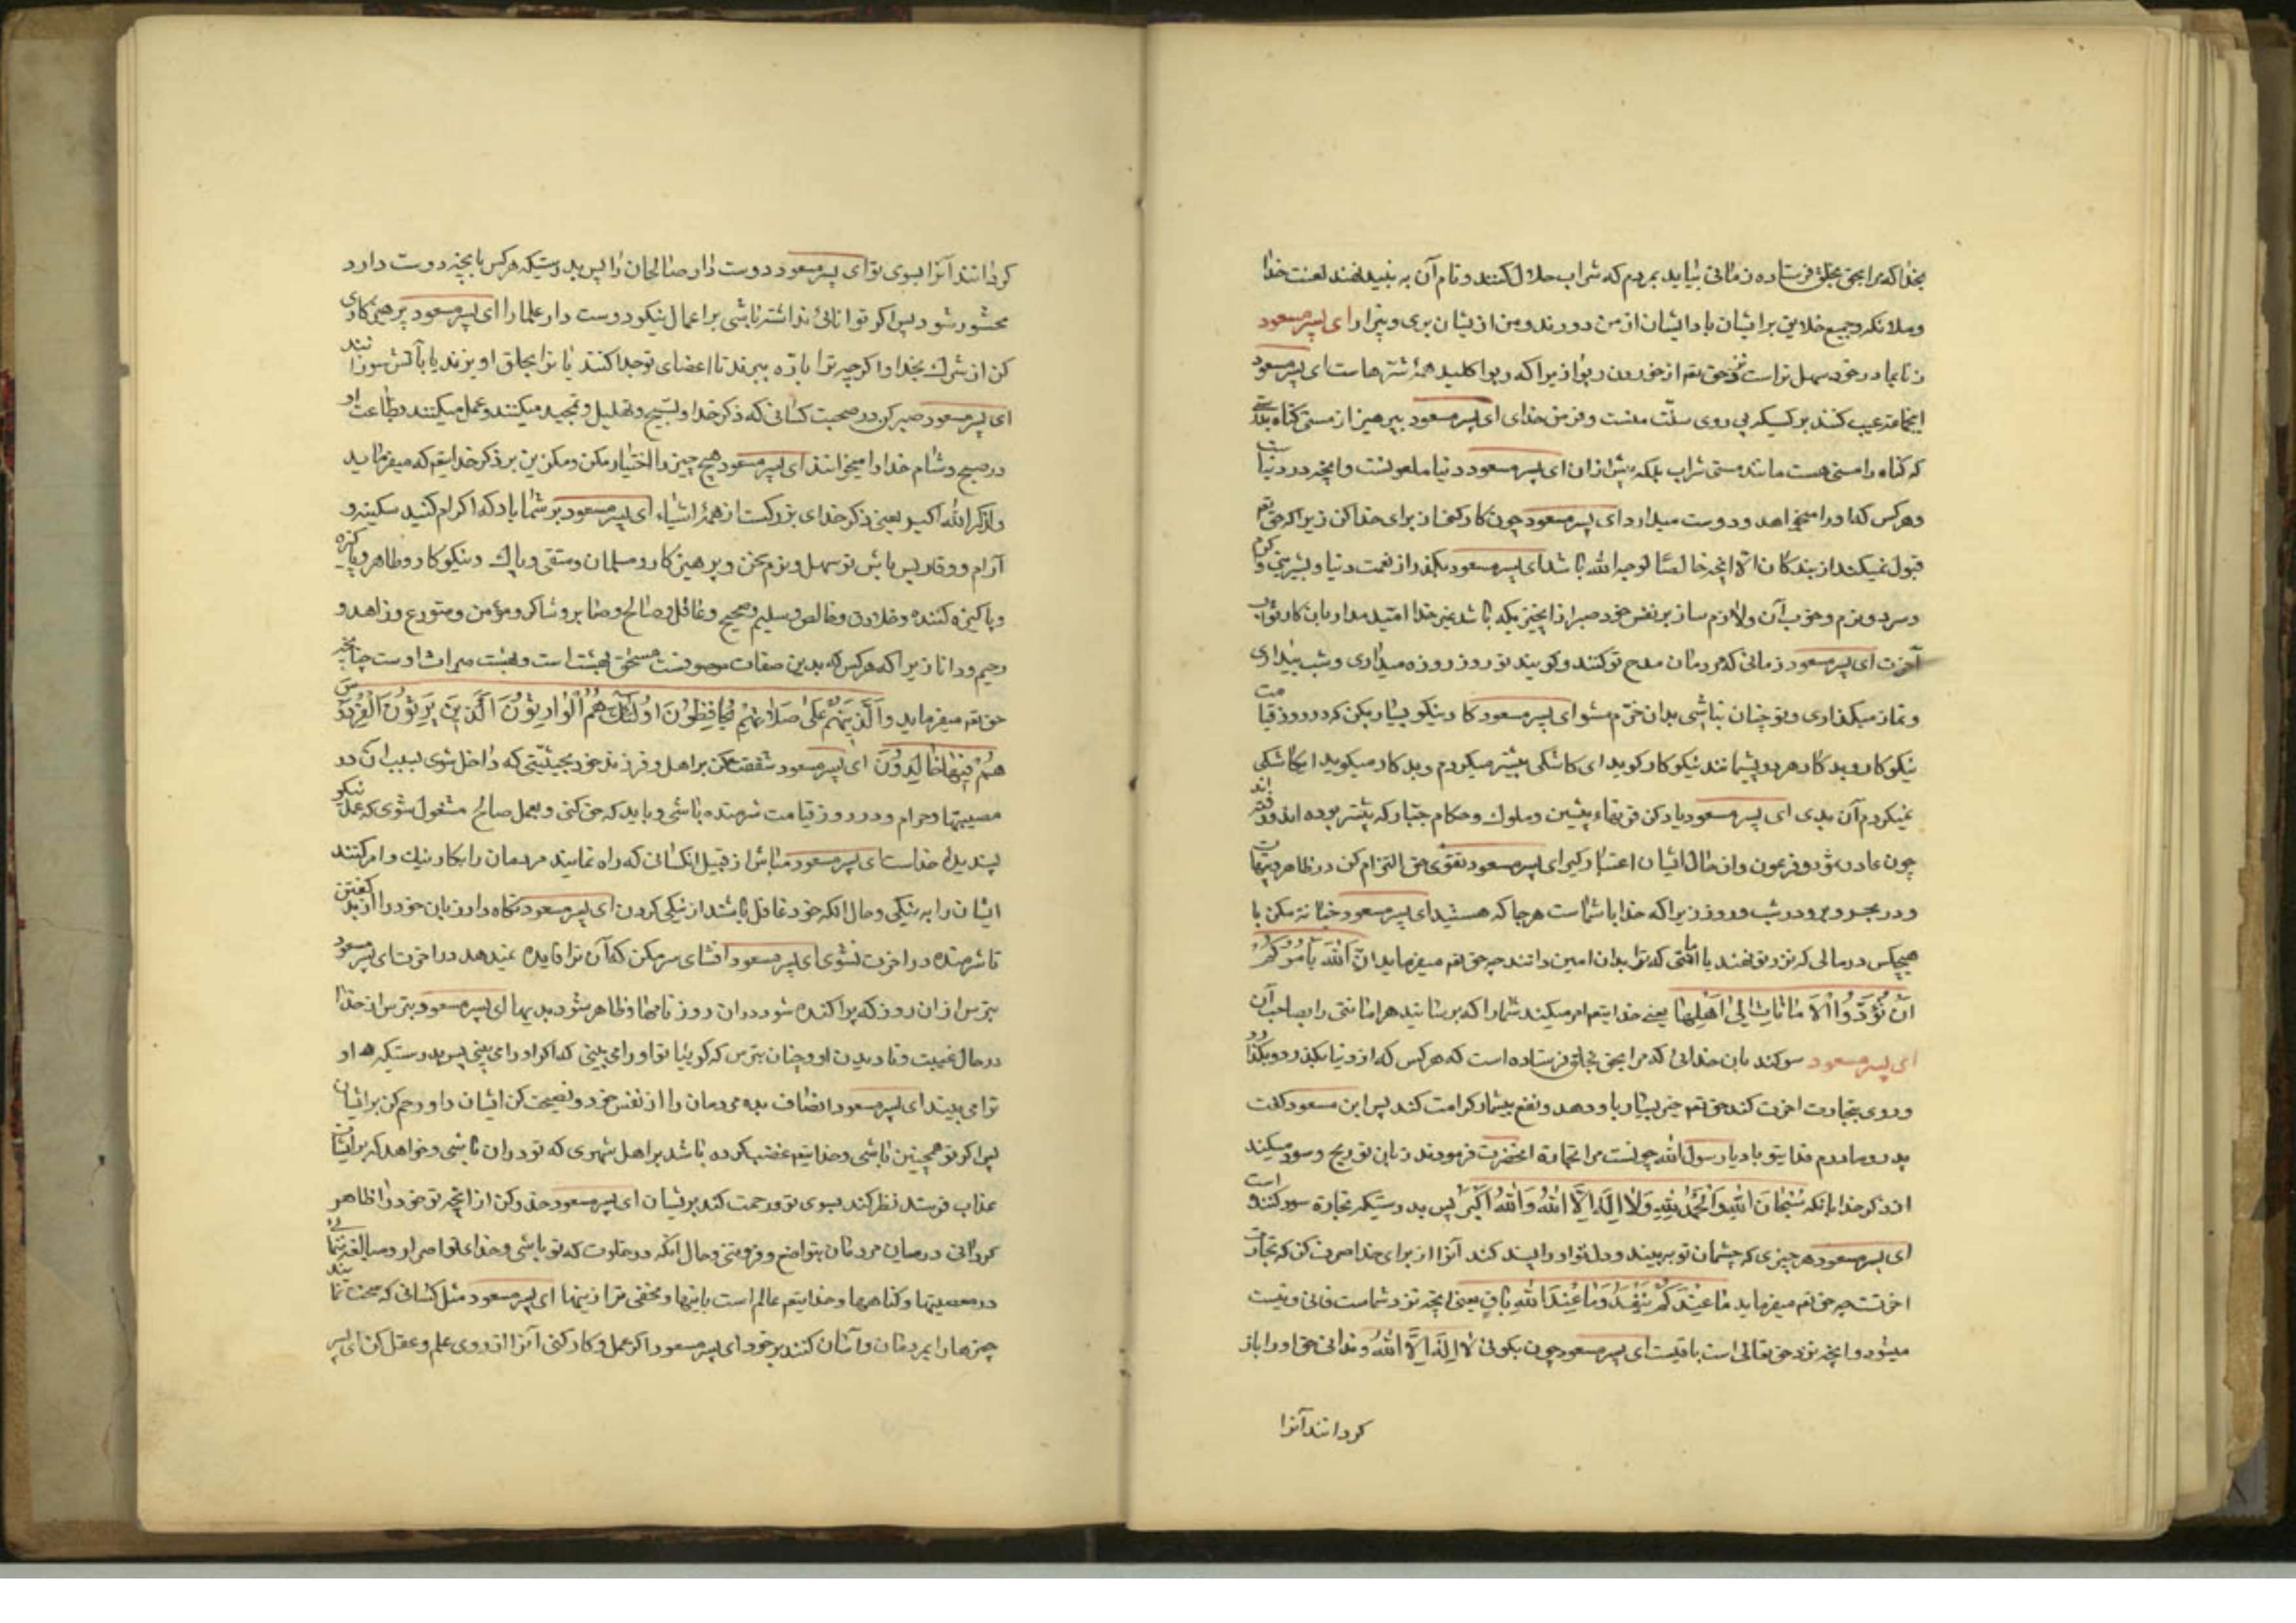 بخدا که مرا بحق بخلق فرستاده زمانی بیاید بمردم که شراب حلال کنند و نام آن به نبید نهند لعنت خدا
و ملائکه و جمیع خلایق بر ایشان باد ایشان از من دورند و من از ایشان بری و بیزار ای پسر مسعود
زنا بمادر خود سهل تر است نزد حق تعم از خوردن ربوا زیرا که ربوا کلید همهٔ شرّهاست ای پسر مسعود
عیب کنند بر کسیکه پی روی سنّت منست و فرض خدای ای پسر مسعود بپرهیز از مستی کناه بدرستی
که کناه را مستی هست مانند مستی شراب بلکه بیش از ان ای پسر مسعود دنیا ملعونست و انچه در دنیا است
و هرکس که او را میخواهد و دوست میدارد ای پسر مسعود چون کار کنی از برای خدا کن زیرا که حق تعم
قبول نمیکند از بندکان الّا انچه خالصًا لوجه الله باشد ای پسر مسعود بکذر از نعمت دنیا و شیرینی و کرم
و سرد و نرم و خوب آن و لازم ساز بر نفس خود صبر از انچیزیکه باشد بغیر خدا امّید مدار بان کار ثواب
آخرت ای پسر مسعود زمانی که مردمان مدح تو کنند و کویند تو روز روزه میداری و شب بیداری
و نماز میکذاری و تو چنان نباشی بدان خرّم مشو ای پسر مسعود کار نیکو بسیار بکن که در روز قیامت
نیکوکار و بدکار هر دو پشیمانند نیکوکار کوید ای کاشکی بیشتر میکردم و بدکار میکوید ایکاشکی
نمیکردم آن بدی ای پسر مسعود یاد کن قرنهاء پیشین و ملوک و حکام جبّار که پیشتر بوده اند و رفته اند
چون عاد و ثمود و فرعون و از حال ایشان اعتبار کیر ای پسر مسعود تقوی حق التزام کن در ظاهر و پنهان
و در بحر و بر و در شب و روز زیرا که خدا با شماست هر جا که هستید ای پسر مسعود خیانة مکن با
هیچکس در مالی که نزد تو نهند یا امانتی که ترا بدان امین دانند چه حق تعم میفرماید انّ اللهَ یَأمُرُکُمْ
اَنْ تُؤَدُّوا الْاَمَانَاتِ اِلٰی اَهْلِهَا یعنی خدایتعم امر میکند شما را که برسانید هر امانتی را بصاحب آن
ای پسر مسعود سوکند بان خدائی که مرا بحق بخلق فرستاده است که هرکس که از دنیا بکذرد و بکذارد
و روی بتجارت اخرت کند حق تعم خیر بسیار باو دهد و نفع بیشمار کرامت کند پس ابن مسعود کفت
پدر و مادرم فدای تو باد یا رسول الله چونست مرا تجارة اخرت فرمودند زبان تو ربح و سود میکند
از ذکر خدا بانکه سُبْحَانَ اللهِ وَالْحَمْدُ لِلهِ وَلَا اِلٰهَ اِلَّا اللهُ وَاللهُ اَکْبَرُ پس بدرستیکه تجارة سود کننده است
ای پسر مسعود هر چیزی که چشمان تو ببیند و دل تو او را پسند کند آنرا از برای خدا صرف کن که تجارت
اخرتست چه حق تعم میفرماید مَاعِنْدَکُمْ یَنْفَدُ وَمَاعِنْدَ اللهِ بَاقٍ یعنی انچه نزد شماست فانی و نیست
میشود و انچه نزد حق تعالی است باقیست ای پسر مسعود چون بکوئی لَا اِلٰهَ اِلَّا اللهُ و ندانی حق او را باز
کردانند آنرا
کردانند آنرا بسوی تو ای پسر مسعود دوست دار صالحان را پس بدرستیکه هر کس با انچه دوست دارد
محشور شود پس اکر توانائی نداشته باشی بر اعمال نیکو دوست دار علما را ای پسر مسعود پرهیزکاری
کن از شرک بخدا و اکرچه ترا باره ببرند تا اعضای تو جدا کنند یا ترا بحلق اویزند یا باتش سوزانند
ای پسر مسعود صبر کن در صحبت کسانی که ذکر خدا و تسبیح و تهلیل و تمجید میکنند و عمل میکنند بطاعت او
در صبح و شام خدا را میخوانند ای پسر مسعود هیچ چیز را اختیار مکن و مکزین بر ذکر خدایتعم که میفرماید
ولذکر الله اکبر یعنی ذکر خدای بزرکست از همهٔ اشیاء ای پسر مسعود بر شما باد که اکرام کنید سکینه و
آرام و وقار پس باش تو سهل و نرم سخن و پرهیزکار و مسلمان و متقی و پاک و نیکوکار و طاهر و پاکیزه
و پاکیزه کننده و صادق و خالص و سلیم و صحیح و عاقل و صالح و صابر و شاکر و مؤمن و متورع و زاهد و
رحیم و دانا زیرا که هرکس که بدین صفات موصوفست مستحق بهشت است و بهشت میراث اوست چنانچه
حق تعم میفرماید وَالَّذِینَهُمْ عَلٰی صَلَاتِهِمْ یُحَافِظُونَ اُولٰئِکَ هُمُ الْوَارِثُونَ اَلَّذِینَ یَرِثُونَ الْفِرْدَوْسَ
هُمْ فِیهَا خَالِدُونَ ای پسر مسعود شفقت مکن بر اهل و فرزند خود بحیثیّتی که داخل شوی بسبب ان در
معصیتها و حرام و در روز قیامت شرمنده باشی و باید که حق کنی و بعمل صالح مشغول شوی که عمل نیکو
پسندیدهٔ خداست ای پسر مسعود مباش از قبیل انکسانی که راه نمایند مردمان را بکار نیک و امر کنند
ایشان را به نیکی و حال انکه خود غافل باشند از نیکی کردن ای پسر مسعود نکاه دار زبان خود را از بد کفتن
تا شرمنده در اخرت نشوی ای پسر مسعود افشای سر مکن که آن ترا فایده نمیدهد در اخرت ای پسر مسعود
بترس از ان روز که پراکنده شود در ان روز نامها و ظاهر شود بدیها ای پسر مسعود بترس از خدا
در حال غیبت و نادیدن او و چنان بترس که کوئیا تو او را می بینی که اکر او را می بینی پس بدرستیکه او
ترا می بیند ای پسر مسعود انصاف بده مردمان را از نفس خود و نصیحت کن ایشان را و رحم کن بر ایشان
پس اکر تو همچنین باشی و خدایتعم غضب کرده باشد بر اهل شهری که تو در ان باشی و خواهد که بر ایشان
عذاب فرستد نظر کند بسوی تو و رحمت کند بریشان ای پسر مسعود حذر کن از انچه تو خود را ظاهر
کردانی در میان مردمان بتواضع و فروتنی و حال انکه در خلوت که تو باشی و خدای تو اصرار و مبالغه نمائی
در معصیتها و کناهها و خدایتعم عالم است باینها و مخفی تر از اینها ای پسر مسعود مثل کسانی که سخت نمایند
چیزها را بمردمان و آسان کنند بر خود ای پسر مسعود اکر عمل و کار کنی آنرا از روی علم و عقل کن ای پسر